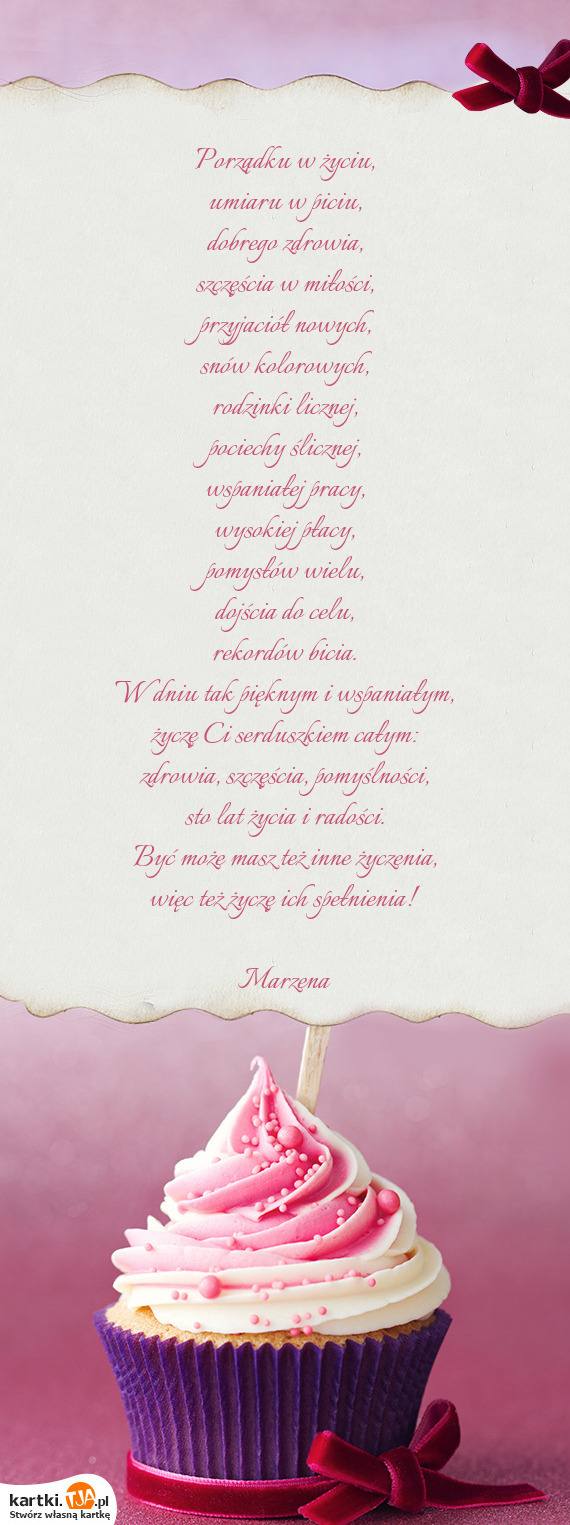 Porządku w życiu,
umiaru w piciu,
dobrego zdrowia,
szczęścia w miłości,
przyjaciół nowych,
snów kolorowych,
rodzinki licznej,
pociechy ślicznej,
wspaniałej pracy,
wysokiej płacy,
pomysłów wielu,
dojścia do celu,
rekordów bicia.
W dniu tak pięknym i wspaniałym,
życzę Ci serduszkiem całym:
zdrowia, szczęścia, pomyślności,
sto lat życia i radości.
Być może masz też inne życzenia,
więc też życzę ich spełnienia!
Marzena
kartki.TJA.pl
Stwórz własną kartkę